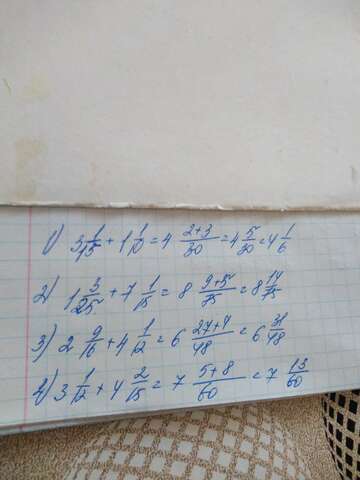 1) 3 1/15 + 1 1/10 = 4 2+3/30 = 4 5/30 = 4 1/6
2) 1 3/25 + 7 1/15 = 8 9+5/75 = 8 14/75
3) 2 9/16 + 4 1/12 = 6 27+4/48 = 6 31/48
4) 3 1/12 + 4 2/15 = 7 5+8/60 = 7 13/60